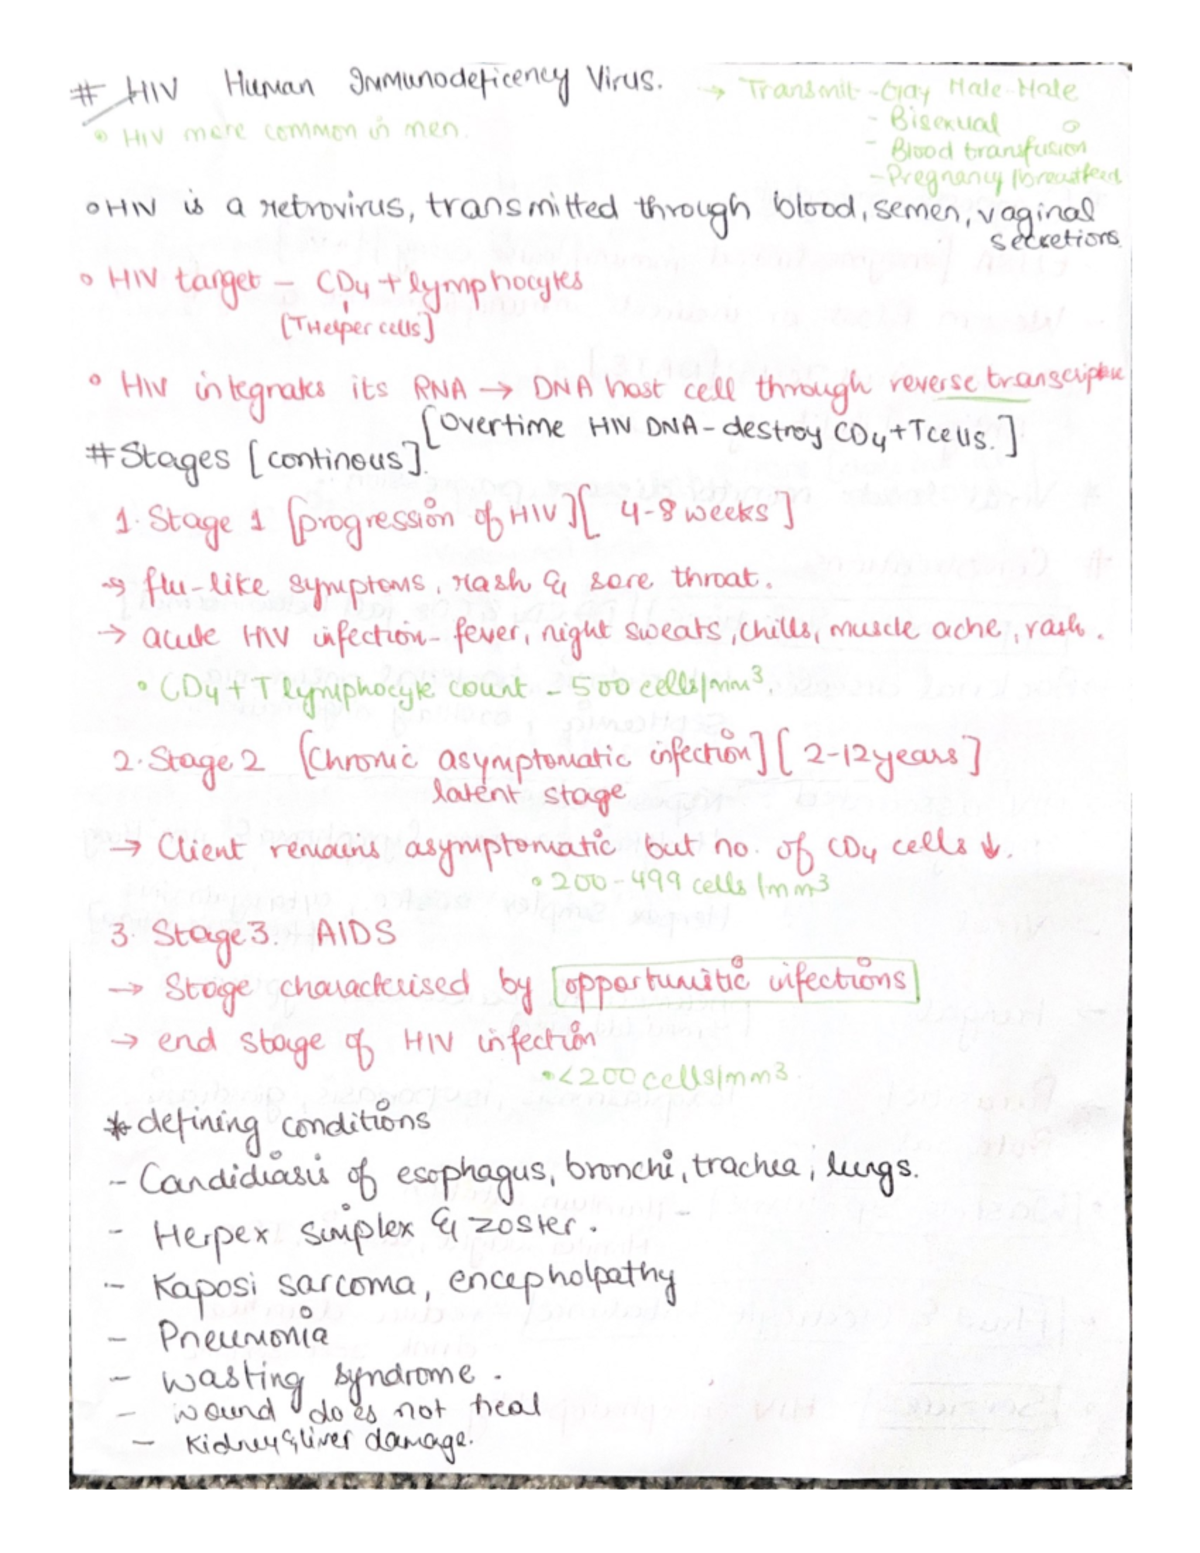 # HIV Human Immunodeficency Virus. → Transmit - Gay Male-Male
• HIV more common in men.
- Bisexual
- Blood transfusion
- Pregnancy / breastfeed
• HIV is a retrovirus, transmitted through blood, semen, vaginal
secretions
• HIV target – CD4 + lymphocytes
[T Helper cells]
• HIV integrates its RNA → DNA host cell through reverse transcriptase
[Overtime HIV DNA - destroy CD4+Tcells.]
# Stages [continous].
1. Stage 1 [progression of HIV] [4-8 weeks]
→ flu-like symptoms, rash & sore throat.
→ acute HIV infection - fever, night sweats, chills, muscle ache, rash.
• CD4+ T lymphocyte count - 500 cells/mm3.
2. Stage 2 [Chronic asymptomatic infection] [2-12 years]
latent stage
→ Client remains asymptomatic but no. of CD4 cells ↓.
• 200-499 cells /mm3
3. Stage 3. AIDS
→ Stage characterised by opportunitic infections
→ end stage of HIV infection
• <200 cells/mm3
* defining conditions
- Candidiasis of esophagus, bronchi, trachea, lungs.
- Herpex simplex & zoster.
- Kaposi sarcoma, encepholpathy
- Pneumonia
- wasting syndrome.
- wound does not heal
- Kidney & liver damage.